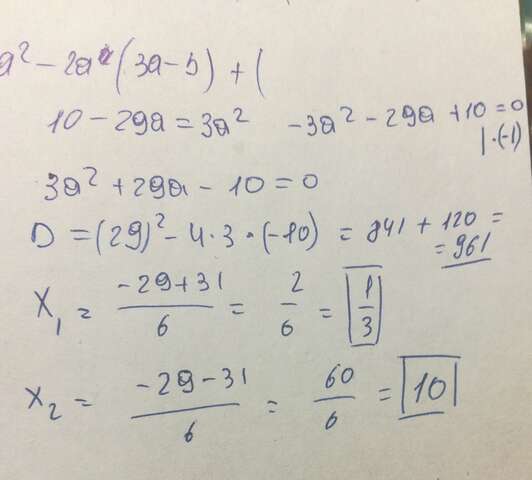 a² - 2a(3a-5) + (
10 - 29a = 3a² -3a² - 29a + 10 = 0
|·(-1)
3a² + 29a - 10 = 0
D = (29)² - 4·3·(-10) = 841 + 120 =
= 961
X₁ = (-29+31)/6 = 2/6 = 1/3
X₂ = (-29-31)/6 = 60/6 = 10